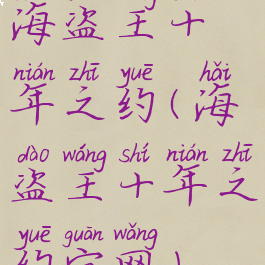 海盗王十
nián zhī yuē hǎi
年之约(海
dào wáng shí nián zhī
盗王十年之
yuē guān wǎng
约官网)